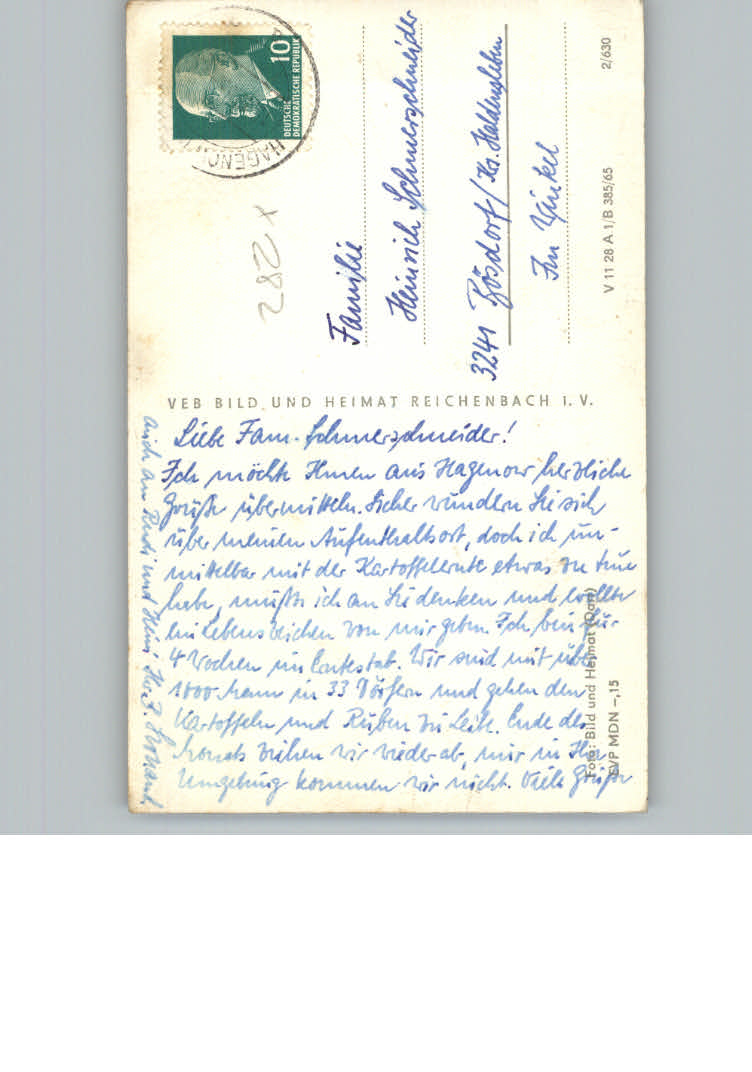 10
DEUTSCHE
DEMOKRATISCHE REPUBLIK
HAGENOW
282 x
Familie
Heinrich Schmerschneider
3241 Bösdorf/Kr. Haldensleben
Im Winkel
2/630
V 11 28 A 1/B 385/65
VEB BILD UND HEIMAT REICHENBACH I. V.
Liebe Fam. Schmerschneider!
Ich möchte Ihnen aus Hagenow herzliche
Grüße übermitteln. Sicher wundern Sie sich
über meinen Aufenthaltsort, doch ich un-
mittelbar mit der Kartoffelernte etwas zu tun
habe, mußte ich an Sie denken und wollte
ein Lebenszeichen von mir geben. Ich bin für
4 Wochen im Erntestab. Wir sind mit über
1000 Mann in 33 Dörfern und gehen den
Kartoffeln und Rüben zu Leibe. Ende des
Monats ziehen wir wieder ab, nur in Ihre
Umgebung kommen wir nicht. Viele Grüße
auch an Rudi und Heini Ihr
Foto: Bild und Heimat
EVP MDN –,15